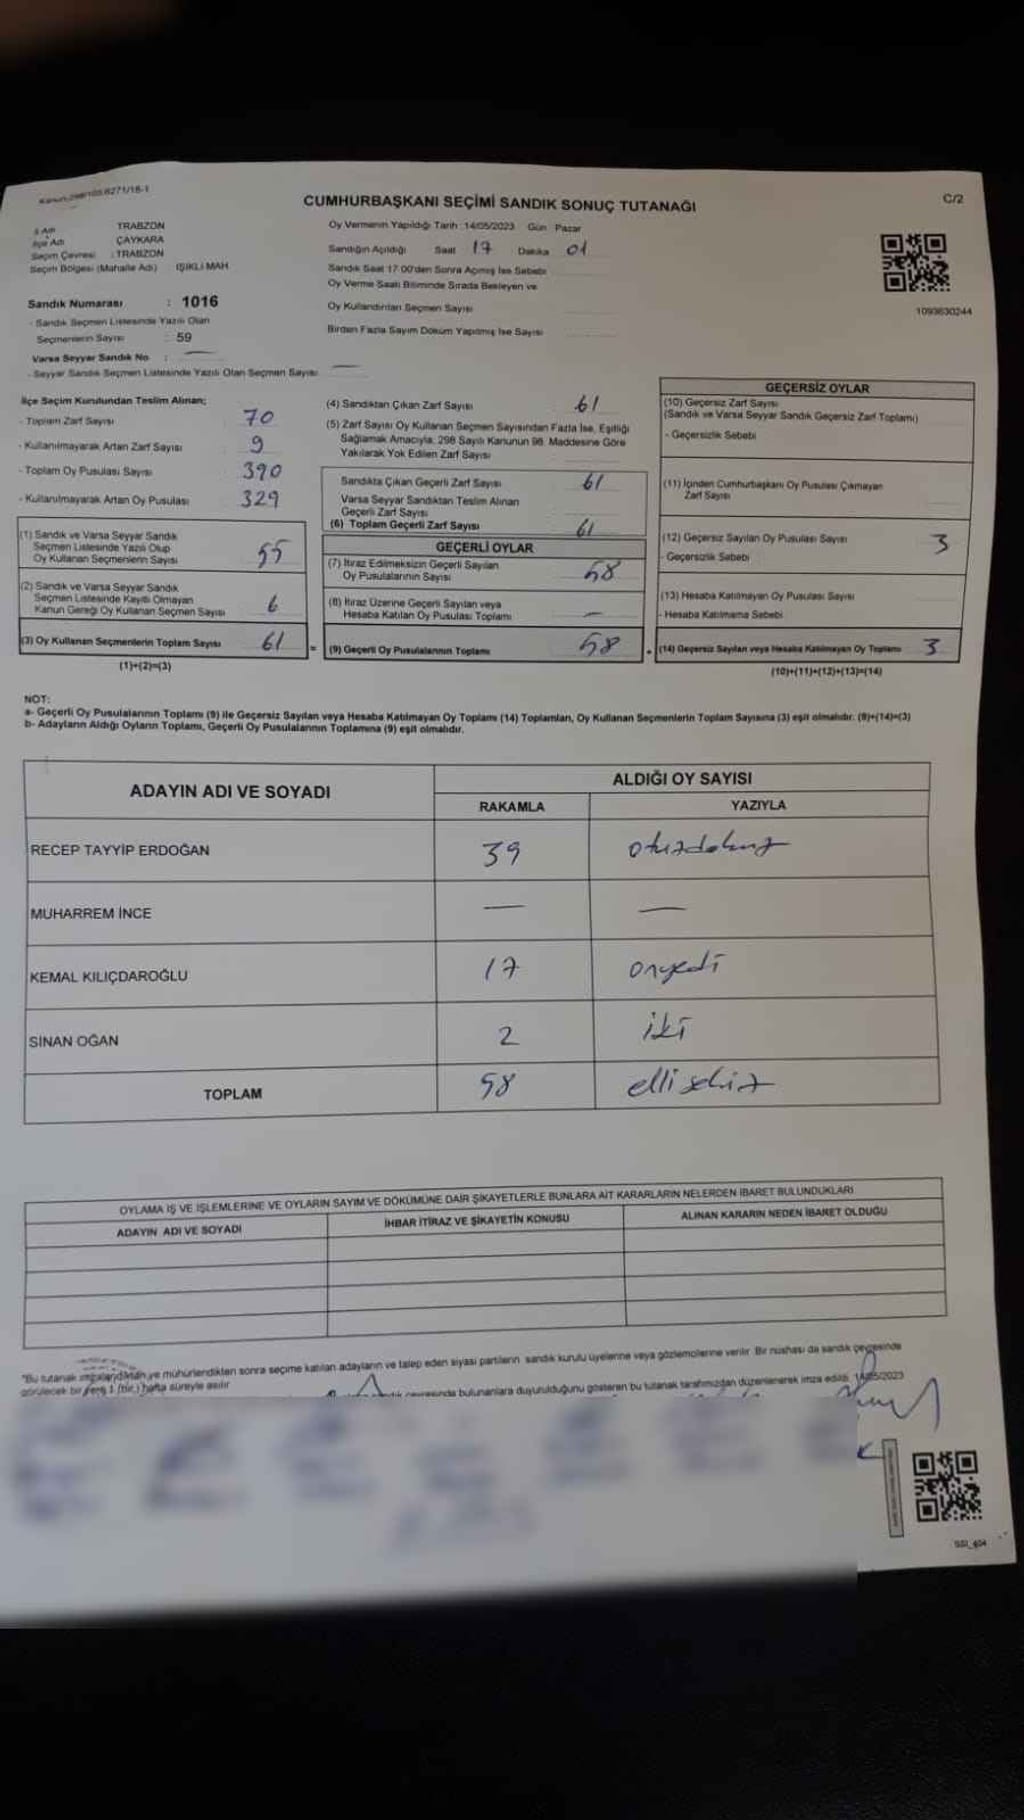 Kanun:298/105,6271/18-1
CUMHURBAŞKANI SEÇİMİ SANDIK SONUÇ TUTANAĞI
C/2
İl Adı : TRABZON
İlçe Adı : ÇAYKARA
Seçim Çevresi : TRABZON
Seçim Bölgesi (Mahalle Adı) IŞIKLI MAH
Sandık Numarası : 1016
- Sandık Seçmen Listesinde Yazılı Olan
Seçmenlerin Sayısı : 59
Varsa Seyyar Sandık No : —
- Seyyar Sandık Seçmen Listesinde Yazılı Olan Seçmen Sayısı —
Oy Vermenin Yapıldığı Tarih :14/05/2023 Gün Pazar
Sandığın Açıldığı Saat 17 Dakika 01
Sandık Saat 17:00'den Sonra Açılmış İse Sebebi
Oy Verme Saati Bitiminde Sırada Bekleyen ve
Oy Kullandırılan Seçmen Sayısı
Birden Fazla Sayım Döküm Yapılmış İse Sayısı
1093630244
İlçe Seçim Kurulundan Teslim Alınan;
- Toplam Zarf Sayısı 70
- Kullanılmayarak Artan Zarf Sayısı 9
- Toplam Oy Pusulası Sayısı 390
- Kullanılmayarak Artan Oy Pusulası 329
(1) Sandık ve Varsa Seyyar Sandık
Seçmen Listesinde Yazılı Olup
Oy Kullanan Seçmenlerin Sayısı 55
(2) Sandık ve Varsa Seyyar Sandık
Seçmen Listesinde Kayıtlı Olmayan
Kanun Gereği Oy Kullanan Seçmen Sayısı 6
(3) Oy Kullanan Seçmenlerin Toplam Sayısı 61 =
(1)+(2)=(3)
(4) Sandıktan Çıkan Zarf Sayısı 61
(5) Zarf Sayısı Oy Kullanan Seçmen Sayısından Fazla İse, Eşitliği
Sağlamak Amacıyla, 298 Sayılı Kanunun 98. Maddesine Göre
Yakılarak Yok Edilen Zarf Sayısı
Sandıkta Çıkan Geçerli Zarf Sayısı 61
Varsa Seyyar Sandıktan Teslim Alınan
Geçerli Zarf Sayısı
(6) Toplam Geçerli Zarf Sayısı 61
GEÇERLİ OYLAR
(7) İtiraz Edilmeksizin Geçerli Sayılan
Oy Pusulalarının Sayısı 58
(8) İtiraz Üzerine Geçerli Sayılan veya
Hesaba Katılan Oy Pusulası Toplamı —
(9) Geçerli Oy Pusulalarının Toplamı 58 +
GEÇERSİZ OYLAR
(10) Geçersiz Zarf Sayısı
(Sandık ve Varsa Seyyar Sandık Geçersiz Zarf Toplamı)
- Geçersizlik Sebebi
(11) İçinden Cumhurbaşkanı Oy Pusulası Çıkmayan
Zarf Sayısı
(12) Geçersiz Sayılan Oy Pusulası Sayısı 3
- Geçersizlik Sebebi
(13) Hesaba Katılmayan Oy Pusulası Sayısı
- Hesaba Katılmama Sebebi
(14) Geçersiz Sayılan veya Hesaba Katılmayan Oy Toplamı 3
(10)+(11)+(12)+(13)=(14)
NOT:
a- Geçerli Oy Pusulalarının Toplamı (9) ile Geçersiz Sayılan veya Hesaba Katılmayan Oy Toplamı (14) Toplamları, Oy Kullanan Seçmenlerin Toplam Sayısına (3) eşit olmalıdır. (9)+(14)=(3)
b- Adayların Aldığı Oyların Toplamı, Geçerli Oy Pusulalarının Toplamına (9) eşit olmalıdır.
ADAYIN ADI VE SOYADI
ALDIĞI OY SAYISI
RAKAMLA YAZIYLA
RECEP TAYYİP ERDOĞAN 39 otuzdokuz
MUHARREM İNCE — —
KEMAL KILIÇDAROĞLU 17 onyedi
SİNAN OĞAN 2 iki
TOPLAM 58 ellisekiz
OYLAMA İŞ VE İŞLEMLERİNE VE OYLARIN SAYIM VE DÖKÜMÜNE DAİR ŞİKAYETLERLE BUNLARA AİT KARARLARIN NELERDEN İBARET BULUNDUKLARI
ADAYIN ADI VE SOYADI İHBAR İTİRAZ VE ŞİKAYETİN KONUSU ALINAN KARARIN NEDEN İBARET OLDUĞU
"Bu tutanak imzalandıktan ve mühürlendikten sonra seçime katılan adayların ve talep eden siyasi partilerin sandık kurulu üyelerine veya gözlemcilerine verilir. Bir nüshası da sandık çevresinde
görülecek bir yere 1 (bir) hafta süreyle asılır
sandık çevresinde bulunanlara duyurulduğunu gösteren bu tutanak tarafımızdan düzenlenerek imza edildi. 14/05/2023